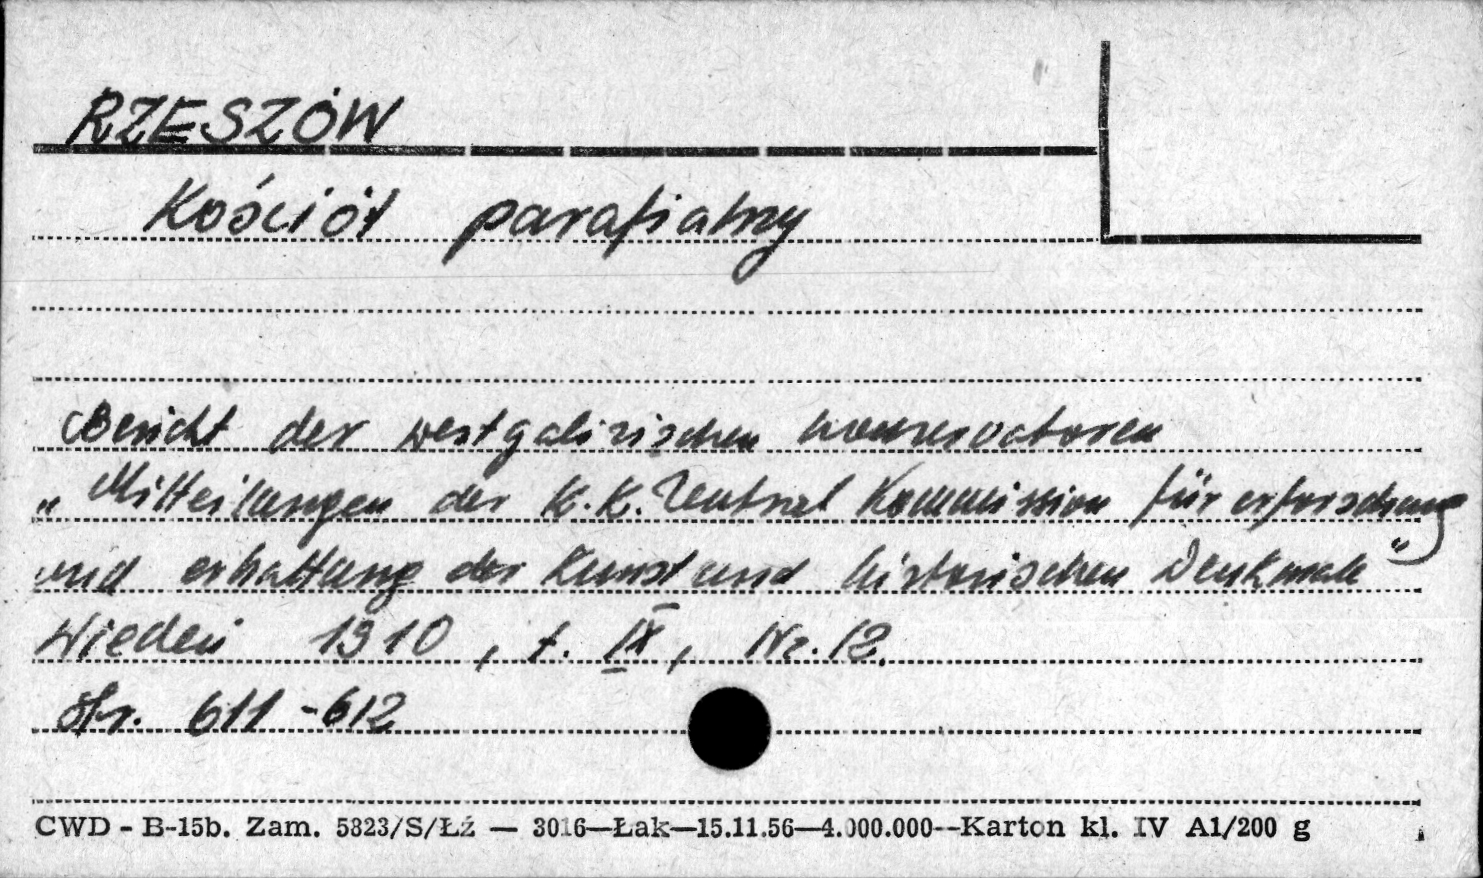 RZESZÓW
Kościół parafialny
Bericht der westgalizischen konservatoren
„Mitteilungen der K.K. Zentral Kommission für erforschung
und erhaltung der Kunst und historischen Denkmale"
Wiedeń 1910, t. IX, Nr. 12.
Str. 611-612
CWD - B-15b. Zam. 5823/S/Łź — 3016—Łak—15.11.56—4.000.000--Karton kl. IV A1/200 g